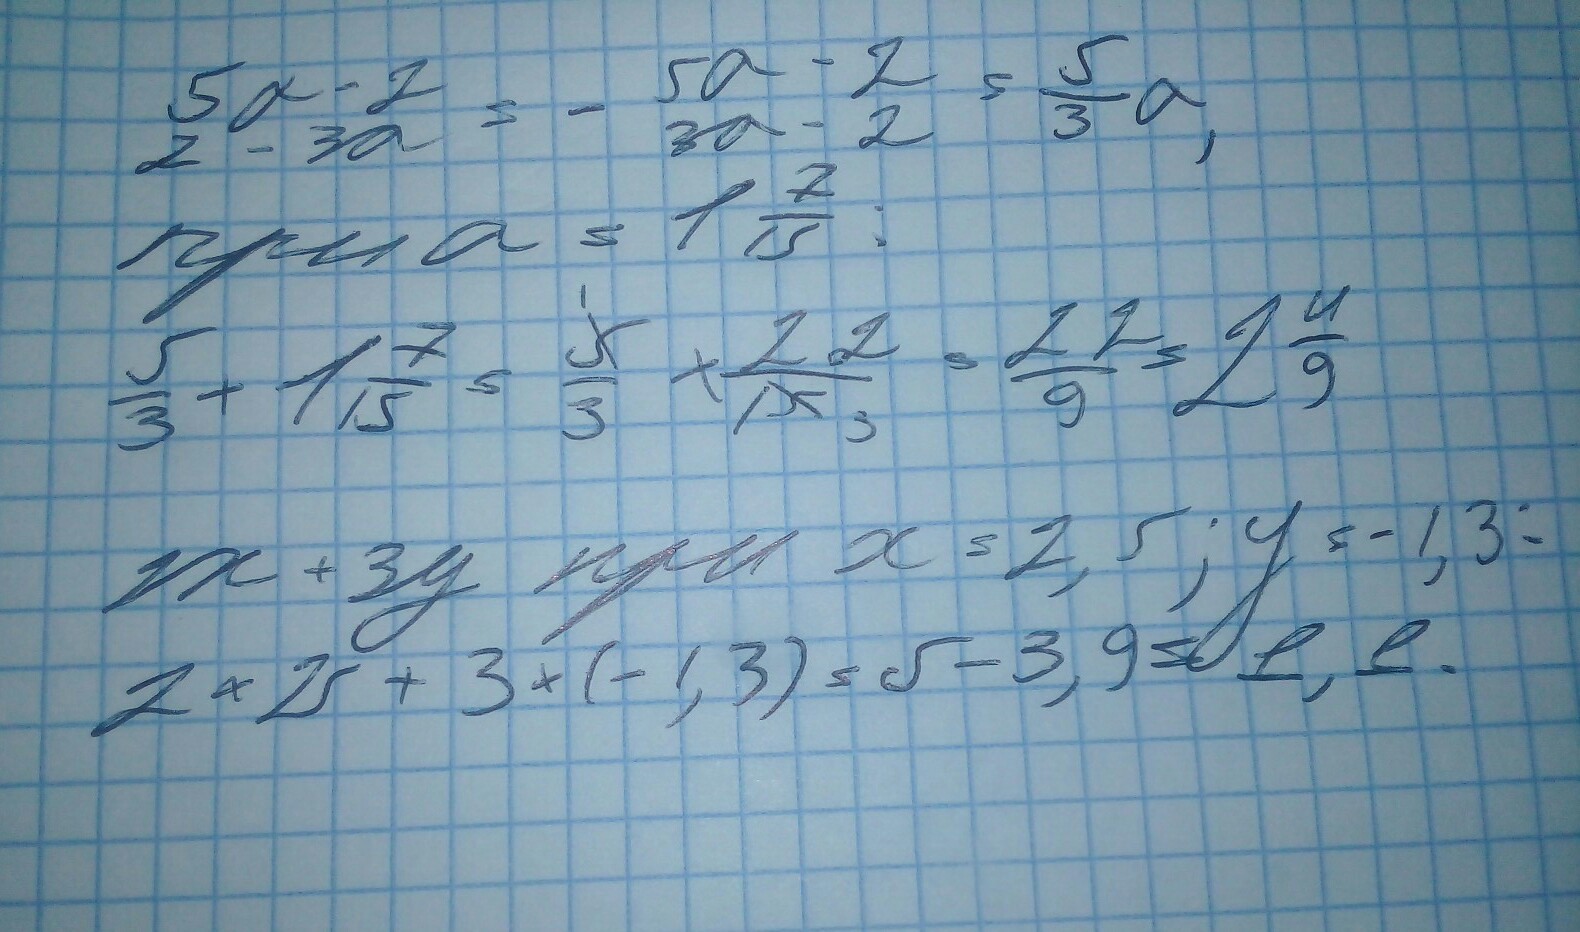 5a - 2
2 - 3a = - 5a - 2
3a - 2 = 5/3 a,
при a = 1 7/15 :
5/3 × 1 7/15 = 5/3 × 22/15 3 = 22/9 = 2 4/9
2x + 3y при x = 2,5; y = -1,3:
2 × 25 + 3 × (-1,3) = 5 - 3,9 =